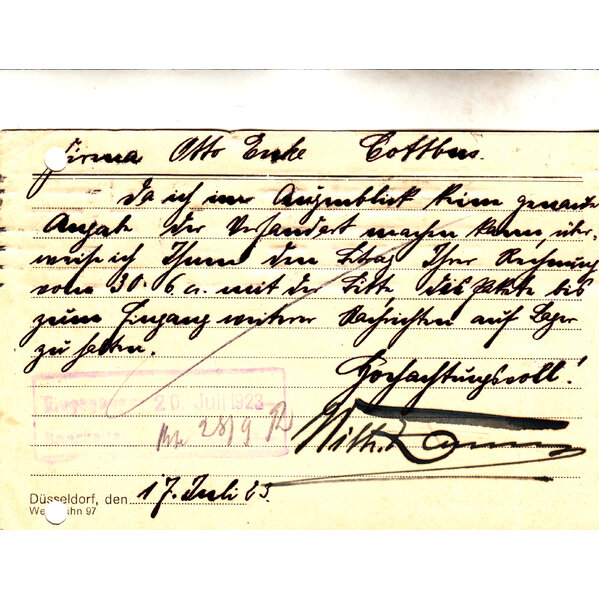 Firma Otto Enke Cottbus.
Da ich im Augenblick keine genaue
Angabe der Versandart machen kann, über-
weise ich Ihnen den Betrag Ihrer Rechnung
vom 30.6. a. mit der Bitte das Pakete bis
zum Eingang weiterer Nachrichten auf Lager
zu halten.
Hochachtungsvoll!
Eingegangen 20 Juli 1923
28/9
Wilh.
Düsseldorf, den 17. Juli 23.
97